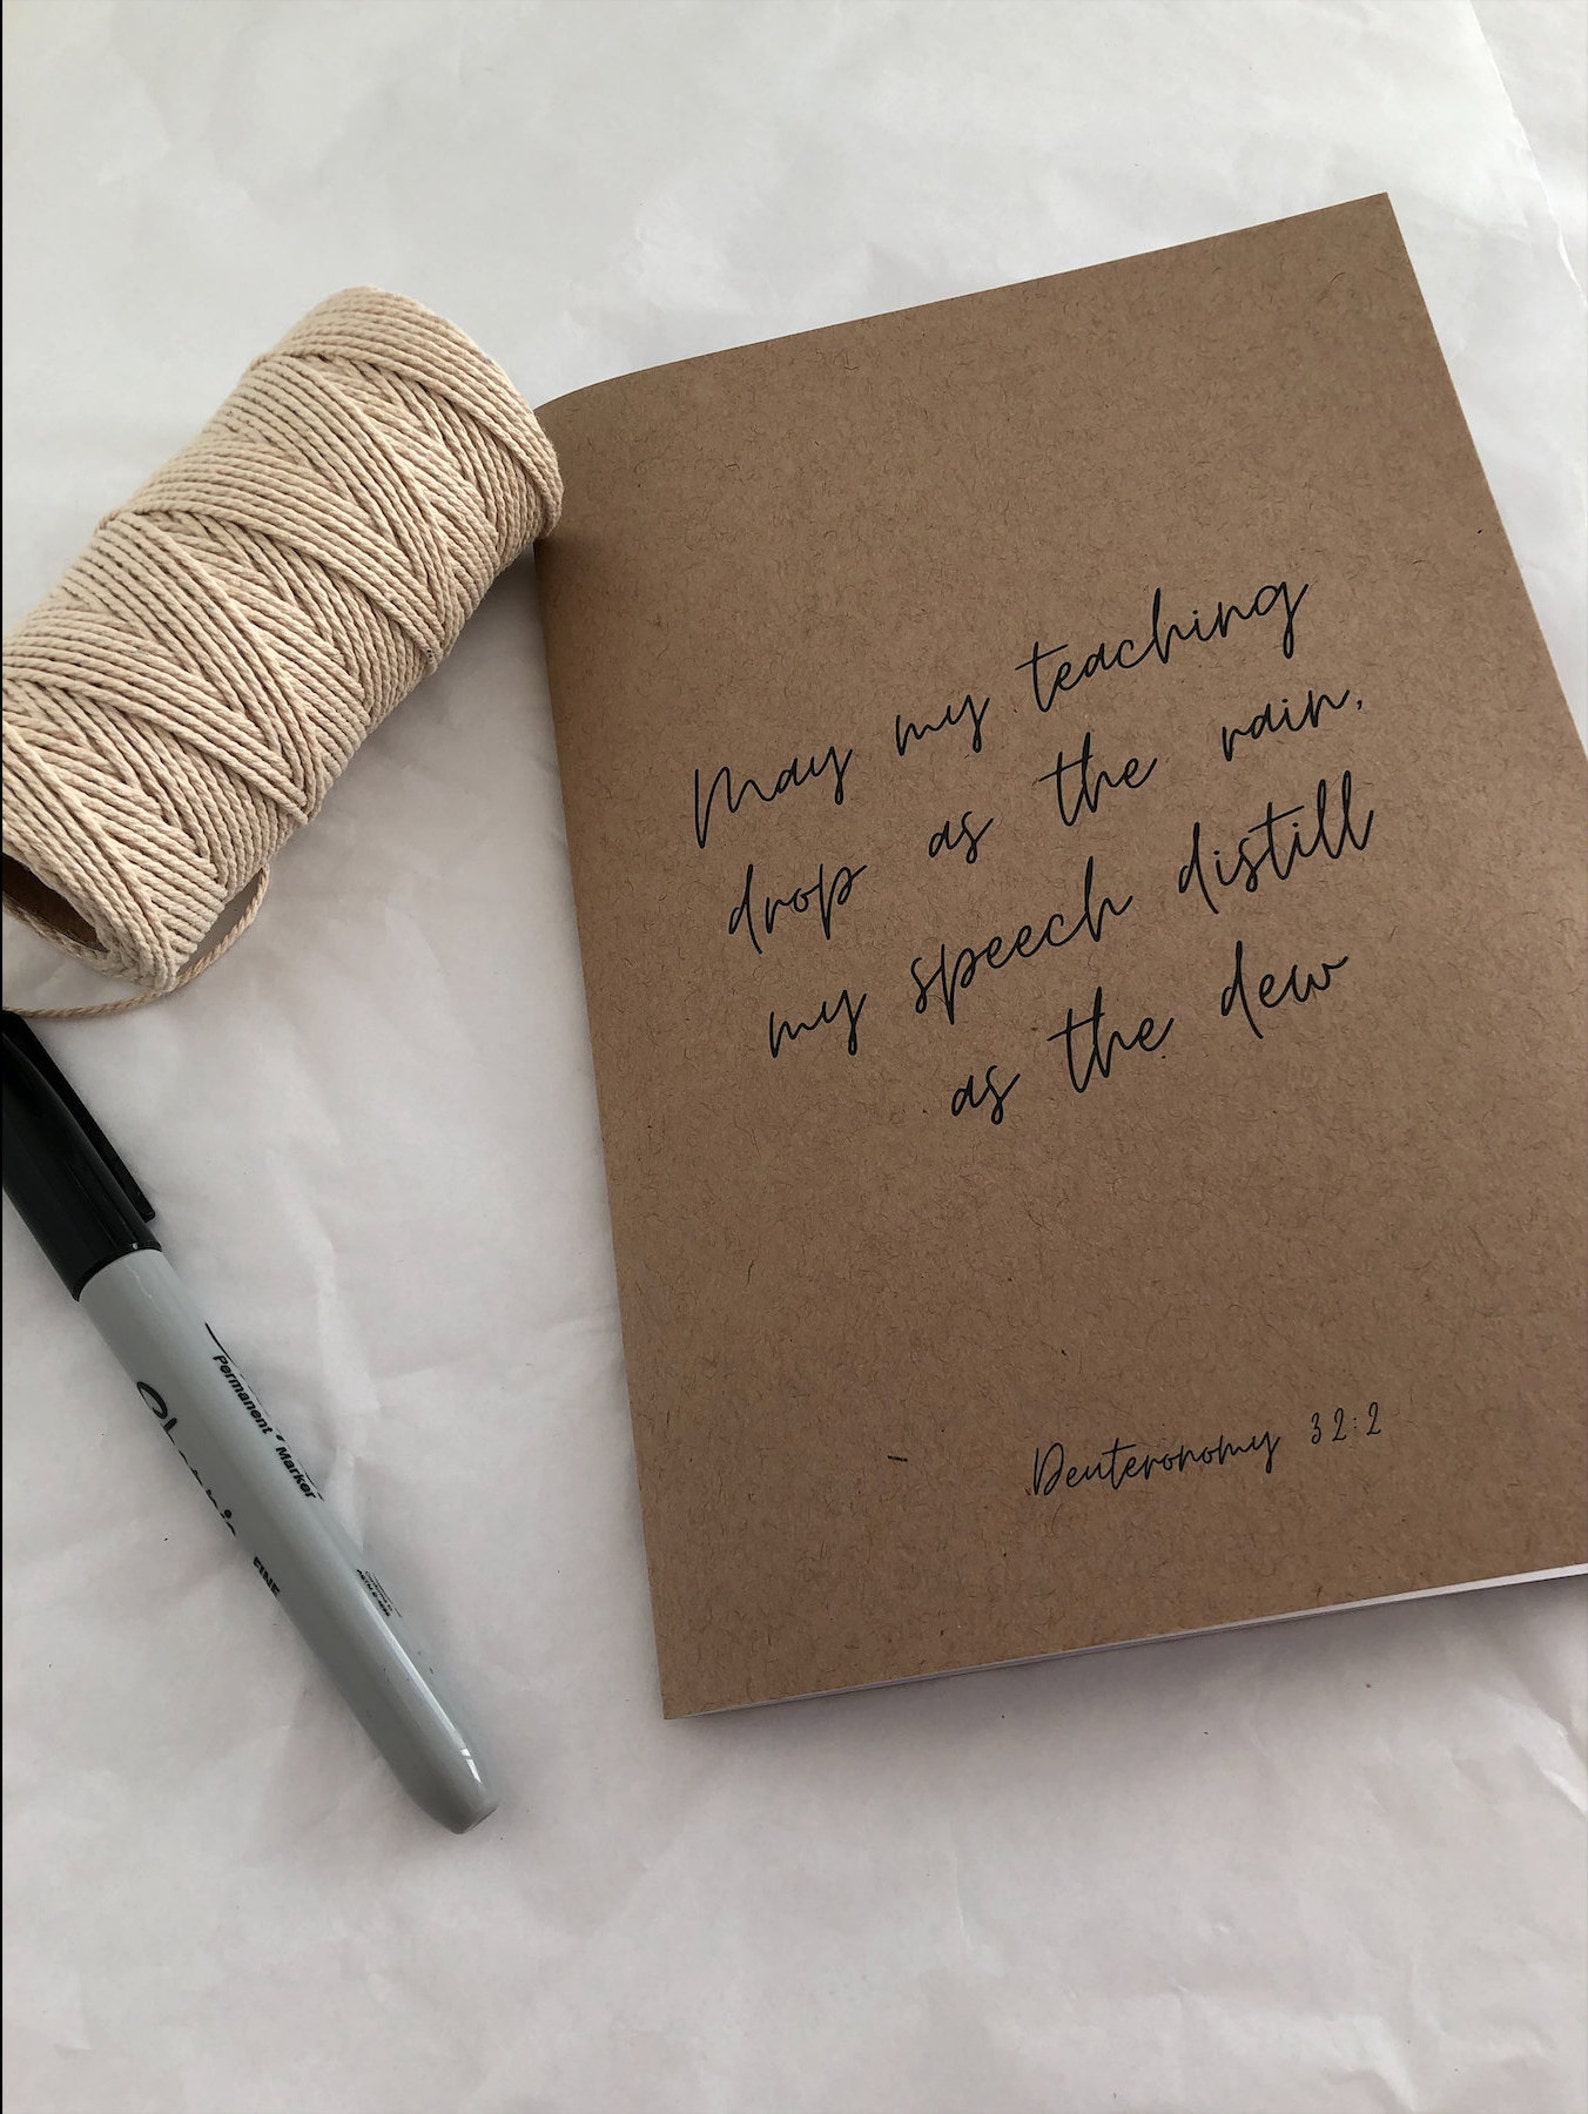 May my teaching
drop as the rain,
my speech distill
as the dew
Deuteronomy 32:2
Permanent Marker
FINE